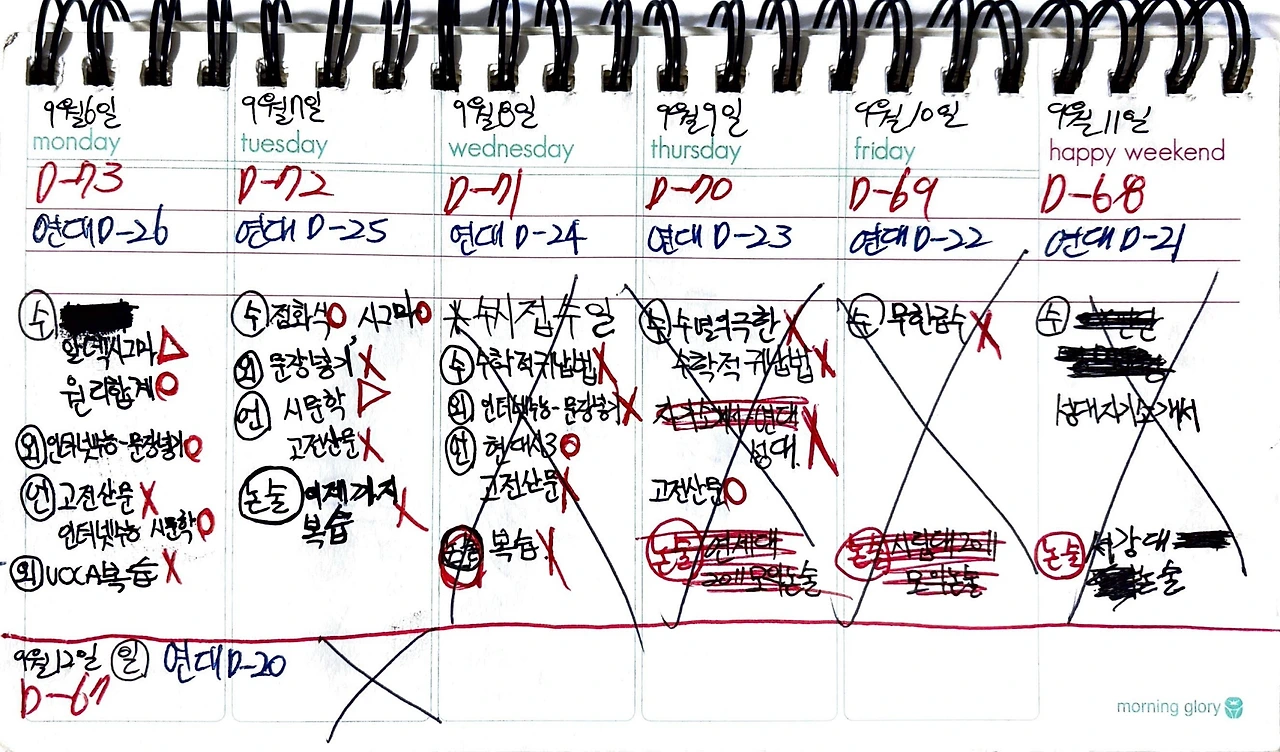 9월6일
monday
D-73
연대D-26
수
알텍시그마 △
원리합계 O
외 인터넷수능-문장넣기 O
언 고전산문 X
인터넷수능 시문학 O
외 VOCA복습 X
9월7일
tuesday
D-72
연대 D-25
수 점화식 O 시그마 O
외 문장넣기 X
언 시문학 ▷
고전산문 X
논술 어제까지
복습 X
9월8일
wednesday
D-71
연대 D-24
* 수시접수일
수 수학적귀납법 X
외 인터넷수능-문장넣기 X
언 현대시3 O
고전산문 X
논술 복습 X
9월9일
thursday
D-70
연대 D-23
수 수열의극한 X
수학적 귀납법 X
자기소개서-연대
성대. X
고전산문 O
논술 연세대
2011모의논술
9월10일
friday
D-69
연대 D-22
수 무한급수 X
논술 시립대2011
모의논술
9월11일
happy weekend
D-68
연대 D-21
수
성대자기소개서
논술 서강대
논술
9월12일 일 연대D-20
D-67
morning glory